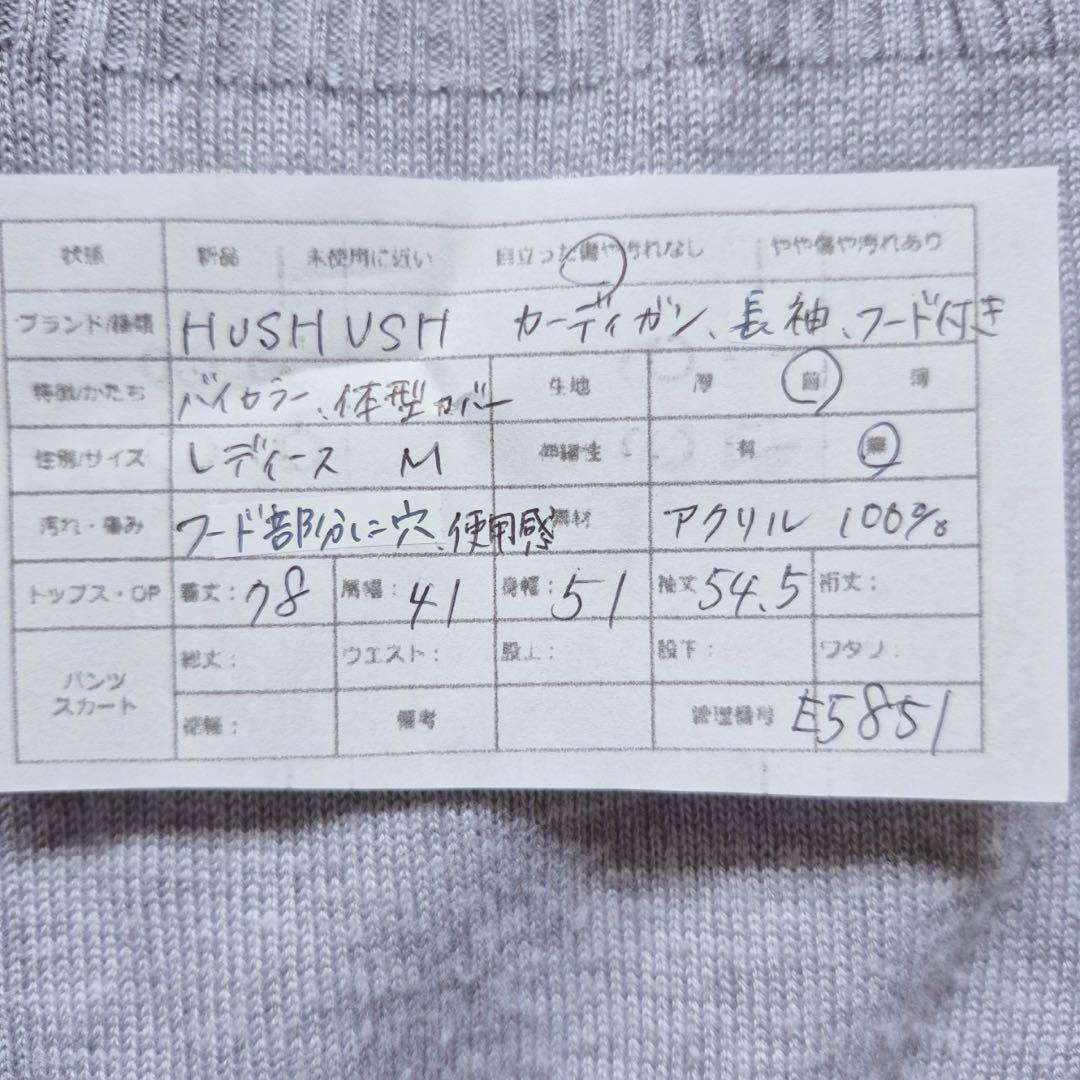 状態 新品 未使用に近い 目立った傷や汚れなし やや傷や汚れあり
ブランド/種類 HUSHUSH カーディガン、長袖、フード付き
特徴/かたち バイカラー、体型カバー 生地 厚 普 薄
性別/サイズ レディース M 伸縮性 有 無
汚れ・傷み フード部分に穴、使用感 素材 アクリル 100%
トップス・OP 着丈: 78 肩幅: 41 身幅: 51 袖丈 54.5 裄丈:
パンツ スカート
総丈: ウエスト: 股上: 股下: ワタリ:
裾幅: 備考 管理番号 E5851